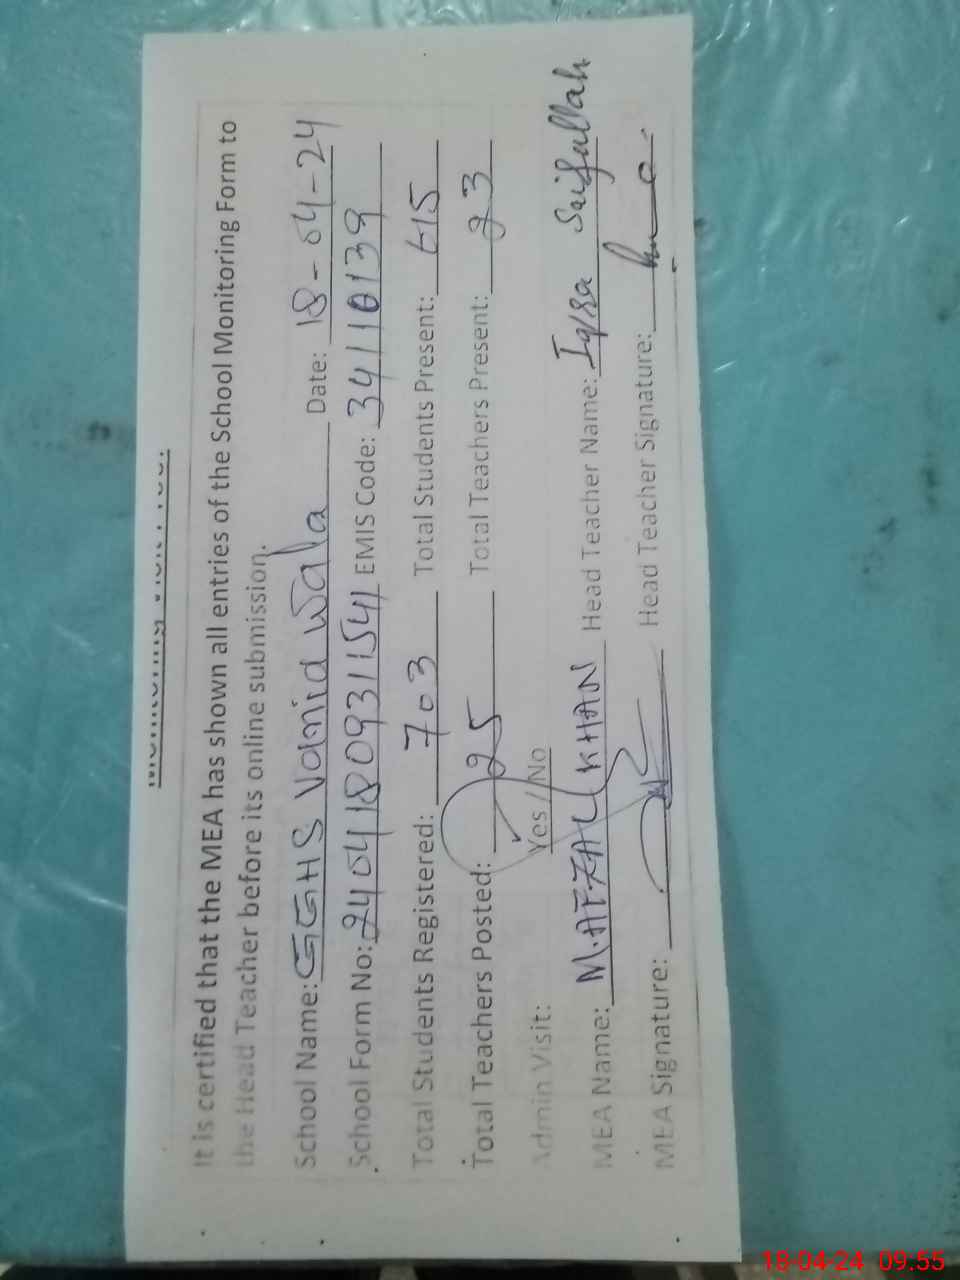 It is certified that the MEA has shown all entries of the School Monitoring Form to
the Head Teacher before its online submission.
School Name: GGHS Vahid Wala Date: 18-04-24
School Form No: 24041809311541 EMIS Code: 34110139
Total Students Registered: 703 Total Students Present: 615
Total Teachers Posted: 25 Total Teachers Present: 23
Admin Visit: Yes / No
MEA Name: M. AFZAL KHAN Head Teacher Name: Iqra Saifullah
MEA Signature: Head Teacher Signature:
18-04-24 09:55